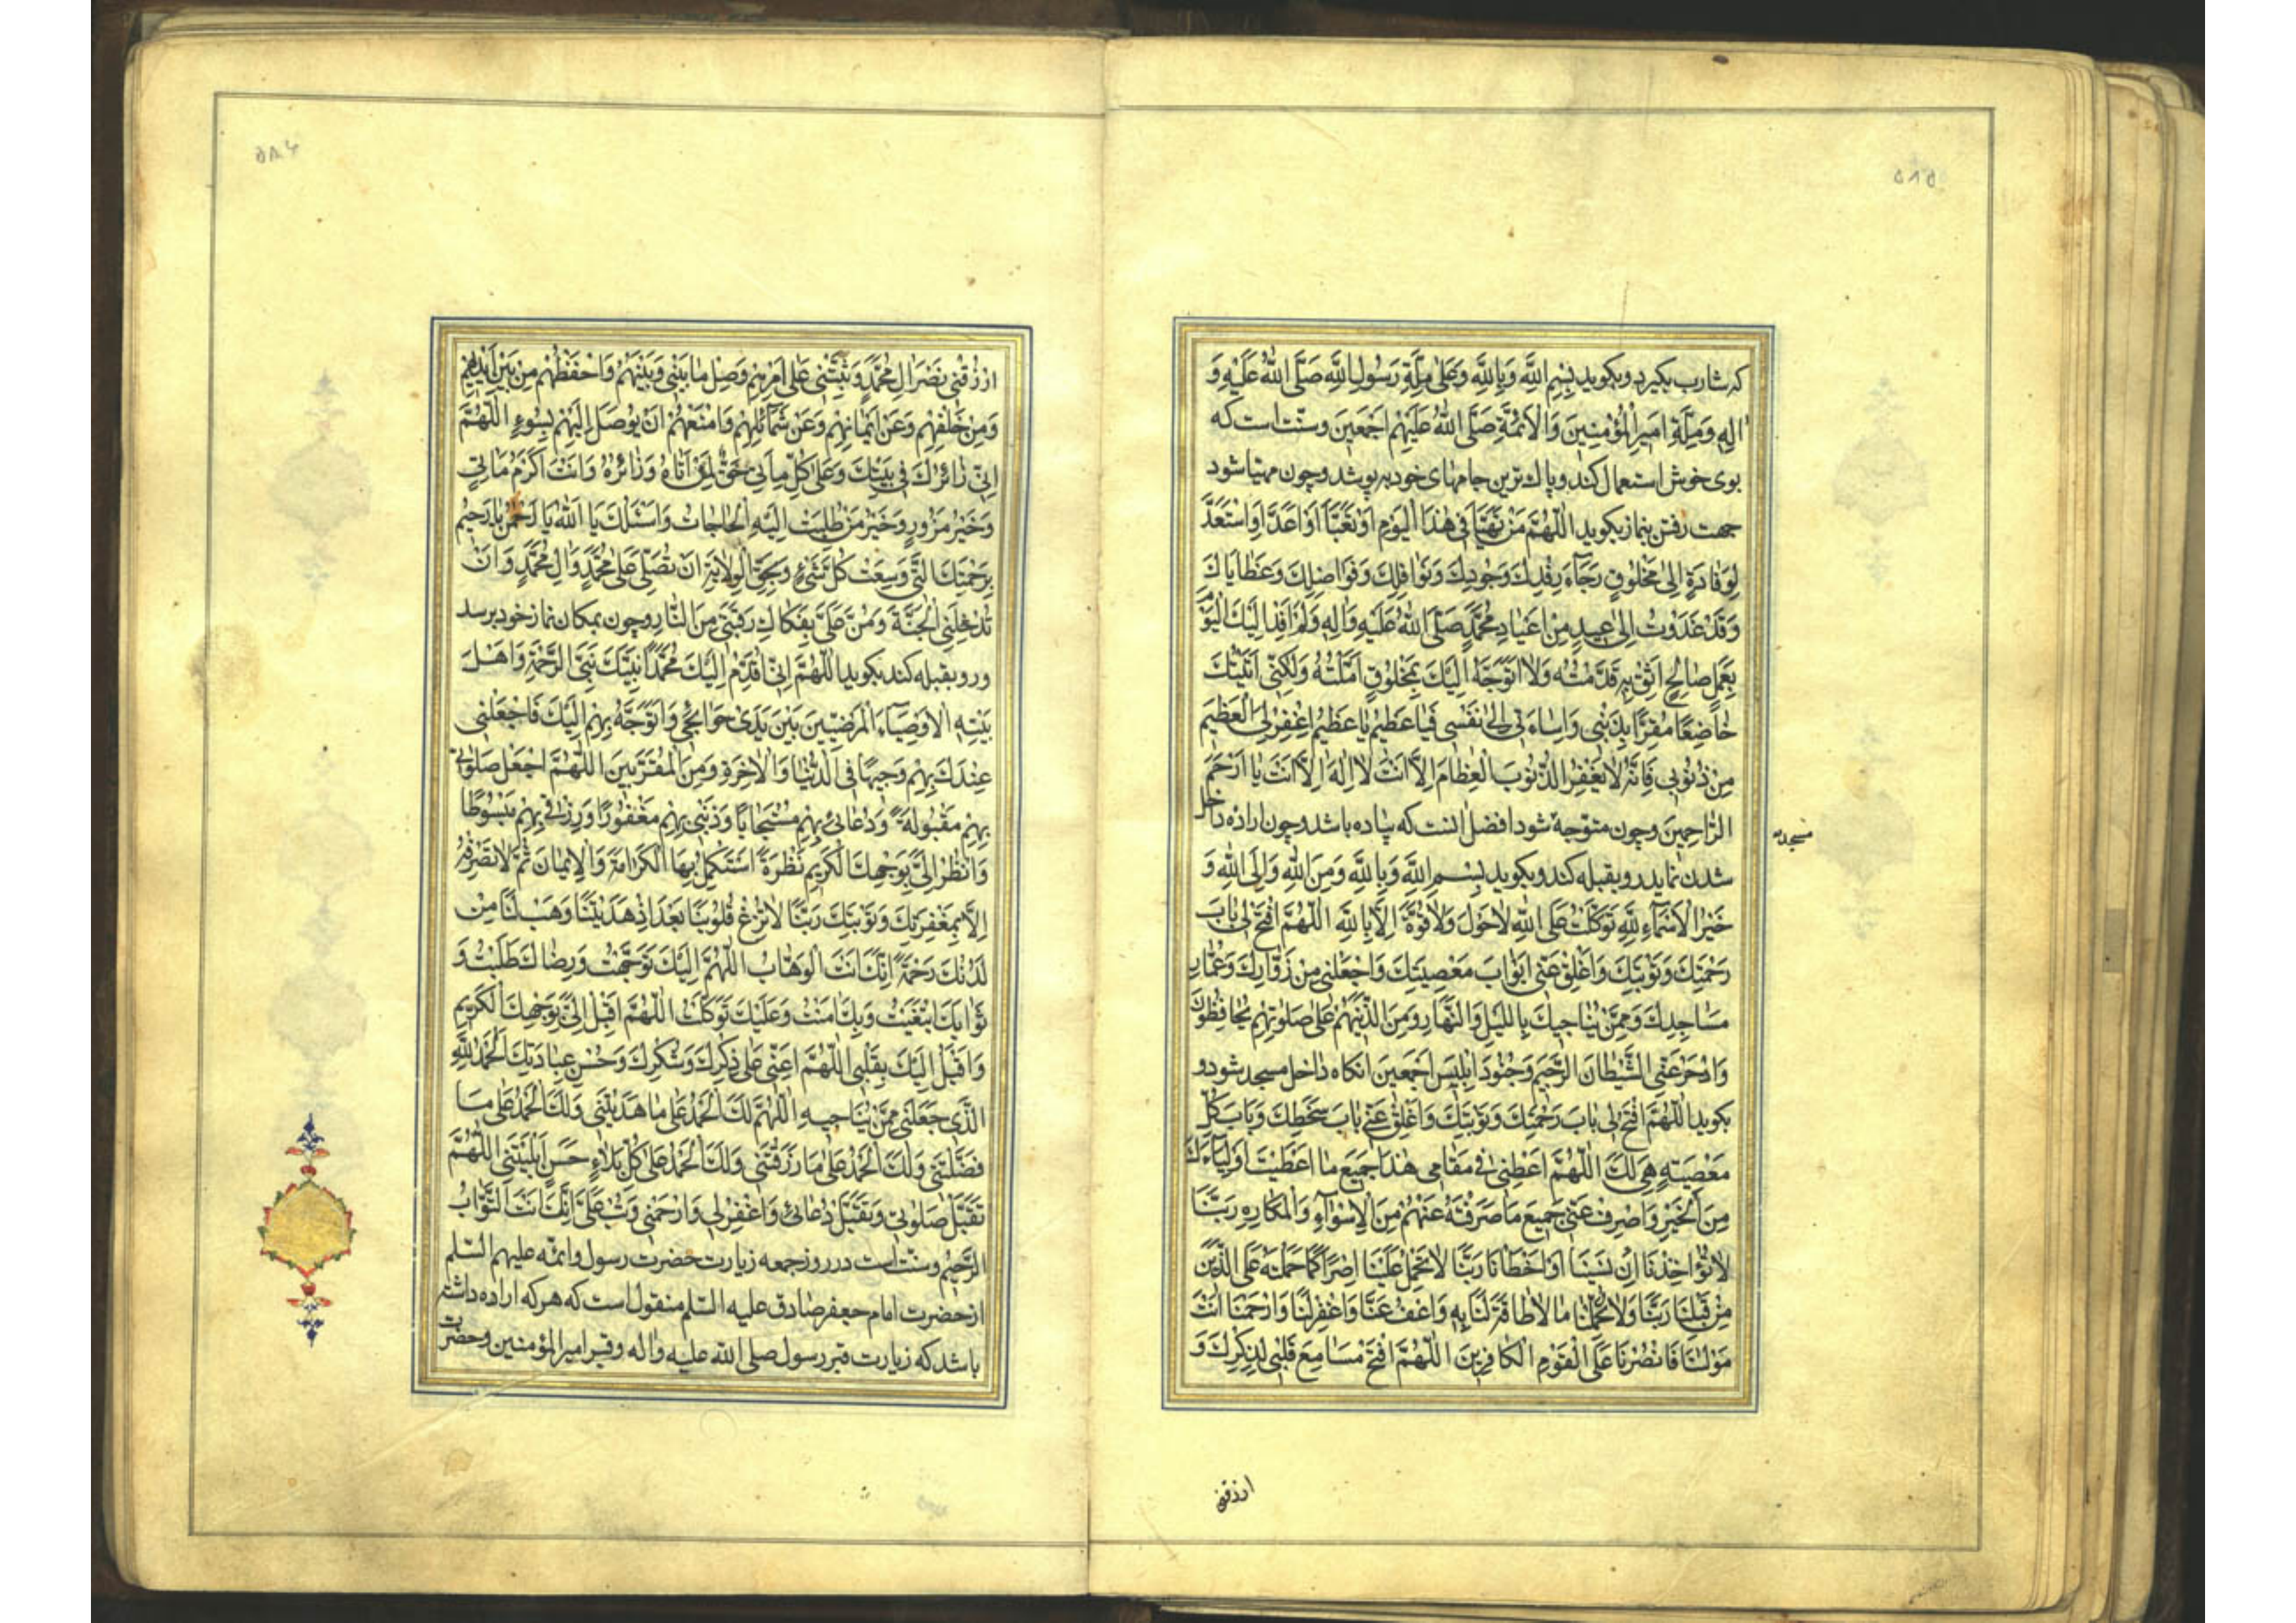 ۵۸۵
که شارب بکیرد و بکوید بِسْمِ اللّٰهِ وَبِاللّٰهِ وَعَلٰی مِلَّةِ رَسُولِ اللّٰهِ صَلَّی اللّٰهُ عَلَیْهِ وَ
اٰلِهِ وَمِلَّةِ اَمیرِالْمُؤْمِنینَ وَالْاَئِمَّةِ صَلَّی اللّٰهُ عَلَیْهِمْ اَجْمَعینَ وسنّت است که
بوی خوش استعمال کند و پاک ترین جامهای خود بپوشد و چون مهیّا شود
جهت رفتن بنماز بکوید اَللّٰهُمَّ مَنْ تَهَیَّأَ فی هٰذَا الْیَوْمِ اَوْ تَعَبَّأَ اَوْ اَعَدَّ اَوِ اسْتَعَدَّ
لِوِفَادَةٍ اِلیٰ مَخْلُوقٍ رَجَاۤءَ رِفْدِكَ وَجُودِكَ وَنَوَافِلِكَ وَفَوَاضِلِكَ وَعَطٰایَاكَ
وَقَدْ غَدَوْتُ اِلیٰ عیدٍ مِنْ اَعْیٰادِ مُحَمَّدٍ صَلَّی اللّٰهُ عَلَیْهِ وَاٰلِهِ وَلَمْ اَفِدْ اِلَیْكَ الْیَوْمَ
بِعَمَلٍ صٰالِحٍ اَثِقُ بِهِ قَدَّمْتُهُ وَلَا اَتَوَجَّهُ اِلَیْكَ بِمَخْلُوقٍ اَمَّلْتُهُ وَلٰكِنّی اَتَیْتُكَ
خٰاضِعًا مُقِرًّا بِذَنْبی وَاِسٰاءَتی اِلیٰ نَفْسی فَیٰا عَظیمُ یٰا عَظیمُ اِغْفِرْ لِیَ الْعَظیمَ
مِنْ ذُنُوبی فَاِنَّهُ لٰا یَغْفِرُ الذُّنُوبَ الْعِظٰامَ اِلَّا اَنْتَ لٰا اِلٰهَ اِلَّا اَنْتَ یٰا اَرْحَمَ
الرّٰاحِمینَ وچون متوجّه شود افضل انست که پیاده باشد وچون اراده داخل
مسجد
شدن نماید رو بقبله کند و بکوید بِسْمِ اللّٰهِ وَبِاللّٰهِ وَمِنَ اللّٰهِ وَاِلَی اللّٰهِ وَ
خَیْرُ الْاَسْمٰاۤءِ لِلّٰهِ تَوَكَّلْتُ عَلَی اللّٰهِ لٰاحَوْلَ وَلٰاقُوَّةَ اِلَّا بِاللّٰهِ اَللّٰهُمَّ افْتَحْ لی بٰابَ
رَحْمَتِكَ وَتَوْبَتِكَ وَاَغْلِقْ عَنّی اَبْوٰابَ مَعْصِیَتِكَ وَاجْعَلْنی مِنْ زُوّٰارِكَ وَعُمّٰارِ
مَسٰاجِدِكَ وَمِمَّنْ یُنٰاجیكَ بِاللَّیْلِ وَالنَّهٰارِ وَمِنَ الَّذینَ هُمْ عَلٰی صَلٰوتِهِمْ یُحٰافِظُونَ
وَادْحَرْ عَنّی الشَّیْطٰانَ الرَّجیمَ وَجُنُودَ اِبْلیسَ اَجْمَعینَ انکاه داخل مسجد شود و
بکوید اَللّٰهُمَّ افْتَحْ لی بٰابَ رَحْمَتِكَ وَتَوْبَتِكَ وَاَغْلِقْ عَنّی بٰابَ سَخَطِكَ وَبٰابَ كُلِّ
مَعْصِیَةٍ هِیَ لَكَ اَللّٰهُمَّ اَعْطِنی فی مَقٰامی هٰذَا جَمیعَ مٰا اَعْطَیْتَ اَوْلِیٰاۤءَكَ
مِنَ الْخَیْرِ وَاصْرِفْ عَنّی جَمیعَ مٰا صَرَفْتَهُ عَنْهُمْ مِنَ الْاَسْوٰاۤءِ وَالْمَكٰارِهِ رَبَّنٰا
لٰا تُؤٰاخِذْنٰا اِنْ نَسینٰا اَوْ اَخْطَأْنٰا رَبَّنٰا لٰا تَحْمِلْ عَلَیْنٰا اِصْرًا كَمٰا حَمَلْتَهُ عَلَی الَّذینَ
مِنْ قَبْلِنٰا رَبَّنٰا وَلٰا تُحَمِّلْنٰا مٰا لٰا طٰاقَةَ لَنٰا بِهِ وَاعْفُ عَنّٰا وَاغْفِرْ لَنٰا وَارْحَمْنٰا اَنْتَ
مَوْلٰنٰا فَانْصُرْنٰا عَلَی الْقَوْمِ الْكٰافِرینَ اَللّٰهُمَّ افْتَحْ مَسٰامِعَ قَلْبی لِذِكْرِكَ وَ
ارزقنی
۵۸۶
ارْزُقْنی نَصْرَ اٰلِ مُحَمَّدٍ وَثَبِّتْنی عَلٰی اَمْرِهِمْ وَصِلْ مٰا بَیْنی وَبَیْنَهُمْ وَاحْفَظْهُمْ مِنْ بَیْنِ اَیْدیهِمْ
وَمِنْ خَلْفِهِمْ وَعَنْ اَیْمٰانِهِمْ وَعَنْ شَمٰاۤئِلِهِمْ وَامْنَعْهُمْ اَنْ یُوصَلَ اِلَیْهِمْ بِسُوۤءٍ اَللّٰهُمَّ
اِنّی زٰائِرُكَ فی بَیْتِكَ وَعَلٰی كُلِّ مَاْتِیٍّ حَقٌّ لِمَنْ اَتٰاهُ وَزٰائِرَهُ وَاَنْتَ اَكْرَمُ مَاْتِیٍّ
وَخَیْرُ مَزُورٍ وَخَیْرُ مَنْ طُلِبَتْ اِلَیْهِ الْحٰاجٰاتُ وَاَسْئَلُكَ یٰا اَللّٰهُ یٰا رَحْمٰنُ یٰا رَحیمُ
بِرَحْمَتِكَ الَّتی وَسِعَتْ كُلَّ شَیْءٍ وَبِحَقِّ الْوِلٰایَةِ اَنْ تُصَلِّیَ عَلٰی مُحَمَّدٍ وَاٰلِ مُحَمَّدٍ وَاَنْ
تُدْخِلَنِی الْجَنَّةَ وَمُنَّ عَلَیَّ بِفَكٰاكِ رَقَبَتی مِنَ النّٰارِ وچون بمکان نماز خود برسد
و رو بقبله کند بکوید اَللّٰهُمَّ اِنّی اُقَدِّمُ اِلَیْكَ مُحَمَّدًا نَبِیَّكَ نَبِیَّ الرَّحْمَةِ وَاَهْلَ
بَیْتِهِ الْاَوْصِیٰاۤءَ الْمَرْضِیّینَ بَیْنَ یَدَیْ حَوٰائِجی وَاَتَوَجَّهُ بِهِمْ اِلَیْكَ فَاجْعَلْنی
عِنْدَكَ بِهِمْ وَجیهًا فِی الدُّنْیٰا وَالْاٰخِرَةِ وَمِنَ الْمُقَرَّبینَ اَللّٰهُمَّ اجْعَلْ صَلٰوتی
بِهِمْ مَقْبُولَةً وَدُعٰائی بِهِمْ مُسْتَجٰابًا وَذَنْبی بِهِمْ مَغْفُورًا وَرِزْقی بِهِمْ مَبْسُوطًا
وَانْظُرْ اِلَیَّ بِوَجْهِكَ الْكَریمِ نَظْرَةً اَسْتَكْمِلُ بِهَا الْكَرٰامَةَ وَالْاِیمٰانَ ثُمَّ لٰا تَصْرِفْهُ
اِلَّا بِمَغْفِرَتِكَ وَتَوْبَتِكَ رَبَّنٰا لٰا تُزِغْ قُلُوبَنٰا بَعْدَ اِذْ هَدَیْتَنٰا وَهَبْ لَنٰا مِنْ
لَدُنْكَ رَحْمَةً اِنَّكَ اَنْتَ الْوَهّٰابُ اَللّٰهُمَّ اِلَیْكَ تَوَجَّهْتُ وَرِضٰاكَ طَلَبْتُ وَ
ثَوٰابَكَ ابْتَغَیْتُ وَبِكَ اٰمَنْتُ وَعَلَیْكَ تَوَكَّلْتُ اَللّٰهُمَّ اَقْبِلْ اِلَیَّ بِوَجْهِكَ الْكَریمِ
وَاَقْبِلْ اِلَیْكَ بِقَلْبی اَللّٰهُمَّ اَعِنّی عَلٰی ذِكْرِكَ وَشُكْرِكَ وَحُسْنِ عِبٰادَتِكَ اَلْحَمْدُ لِلّٰهِ
الَّذی جَعَلَنی مِمَّنْ یُنٰاجیهِ اَللّٰهُمَّ لَكَ الْحَمْدُ عَلٰی مٰا هَدَیْتَنی وَلَكَ الْحَمْدُ عَلٰی مٰا
فَضَّلْتَنی وَلَكَ الْحَمْدُ عَلٰی مٰا رَزَقْتَنی وَلَكَ الْحَمْدُ عَلٰی كُلِّ بَلٰاۤءٍ حَسَنٍ اَبْلَیْتَنی اَللّٰهُمَّ
تَقَبَّلْ صَلٰوتی وَتَقَبَّلْ دُعٰائی وَاغْفِرْ لی وَارْحَمْنی وَتُبْ عَلَیَّ اِنَّكَ اَنْتَ التَّوّٰابُ
الرَّحیمُ وسنّت است در روز جمعه زیارت حضرت رسول وائمّه علیهم السّلم
از حضرت امام جعفر صادق علیه السّلم منقول است که هرکه اراده داشته
باشد که زیارت قبر رسول صلی الله علیه واله وقبر امیرالمؤمنین وحضرت